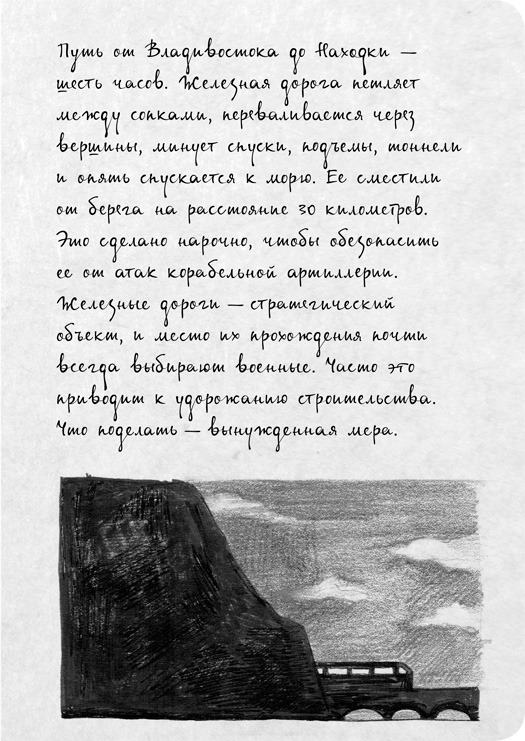 Путь от Владивостока до Находки —
шесть часов. Железная дорога петляет
между сопками, переваливается через
вершины, минует спуски, подъемы, тоннели
и опять спускается к морю. Ее сместили
от берега на расстояние 30 километров.
Это сделано нарочно, чтобы обезопасить
ее от атак корабельной артиллерии.
Железные дороги — стратегический
объект, и место их прохождения почти
всегда выбирают военные. Часто это
приводит к удорожанию строительства.
Что поделать — вынужденная мера.